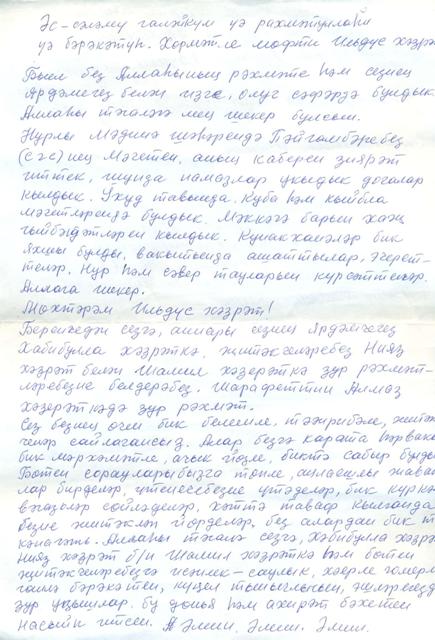 Әс-сәләму галәйкум үә рахмәтуллаһи
үә бәрәкәтуһ. Хөрмәтле мөфти Ильдус хәзрәт
Быел без Аллаһының рәхмәте һәм сезнең
Ярдәмегез белән изге, олуг сәфәрдә булдык.
Аллаһы тәгаләгә мең шөкер булсын.
Нурлы Мәдинә шәһәрендә Пәйгамбәребез
(с г с)нең Мәчетен, аның каберен зиярәт
иттек, шунда намазлар укыдык догалар
кылдык. Ухуд тавында. Куба һәм кыйбла
мәчетләрендә булдык. Мәккәгә барып хаҗ
гыйбәдәтләрен кылдык. Кунакханәләр бик
яхшы булды, вакытында ашаттылар, эчерт-
теләр. Нур һәм сәвер тауларын күрсәттеләр.
Аллага шөкер.
Мөхтәрәм Ильдус хәзрәт!
Беренчедән сезгә, аннары сезнең Ярдәмчегез
Хабибулла хәзрәткә, җитәкчеләребез Нияз
хәзрәт белән Шамил хәзерәткә зур рәхмәт-
ләребезне белдерәбез. Шарафетдин Алмаз
хәзерәткәдә зур рәхмәт.
Сез безнең өчен бик белемле, тәҗрибәле, җитәк-
челәр сайлагансыз. Алар безгә карата һәрвакыт
бик мәрхәмәтле, ачык йөзле, биктә сабыр булдылар
Бөтен сорауларыбызга төпле, аңлаешлы җавап-
лар бирделәр, үтенечебезне үтәделәр, бик күркәм
вәгазьләр сөйләделәр, хәттә таваф кылганда
безне җитәкләп йөрделәр. без алардан бик
канәгать. Аллаһы тәгалә сезгә, Хәбибулла хәзрәткә
Нияз хәзрәт б/н Шамил хәзрәткә һәм бөтен
җитәкчеләребезгә исәнлек-саулык, хәерле гомерләр
гаилә бәрәкәтен, күңел тынычлыгын, эшләрегездә
зур уңышлар. бу дөнья һәм ахирәт бәхетен
насыйп итсен. Әмин, Әмин. Әмин.